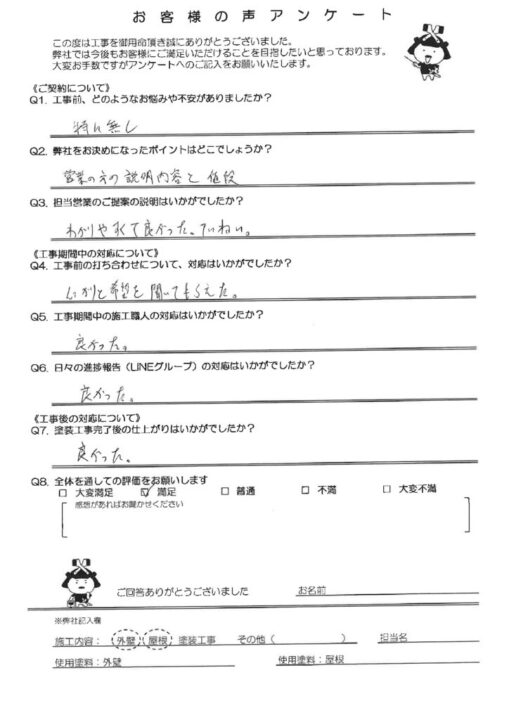 お客様の声アンケート
この度は工事を御用命頂き誠にありがとうございました。
弊社では今後もお客様にご満足いただけることを目指したいと思っております。
大変お手数ですがアンケートへのご記入をお願いいたします。
《ご契約について》
Q1. 工事前、どのようなお悩みや不安がありましたか？
特に無し
Q2. 弊社をお決めになったポイントはどこでしょうか？
営業の方の説明内容と値段
Q3. 担当営業のご提案の説明はいかがでしたか？
わかりやすくて良かった。ていねい。
《工事期間中の対応について》
Q4. 工事前の打ち合わせについて、対応はいかがでしたか？
しっかりと希望を聞いてもらえた。
Q5. 工事期間中の施工職人の対応はいかがでしたか？
良かった。
Q6. 日々の進捗報告（LINEグループ）の対応はいかがでしたか？
良かった。
《工事後の対応について》
Q7. 塗装工事完了後の仕上がりはいかがでしたか？
良かった。
Q8. 全体を通しての評価をお願いします
□ 大変満足 ☑ 満足 □ 普通 □ 不満 □ 大変不満
感想があればお聞かせください
ご回答ありがとうございました お名前
※弊社記入欄
施工内容： 外壁 屋根 塗装工事 その他（ ） 担当名
使用塗料：外壁 使用塗料：屋根